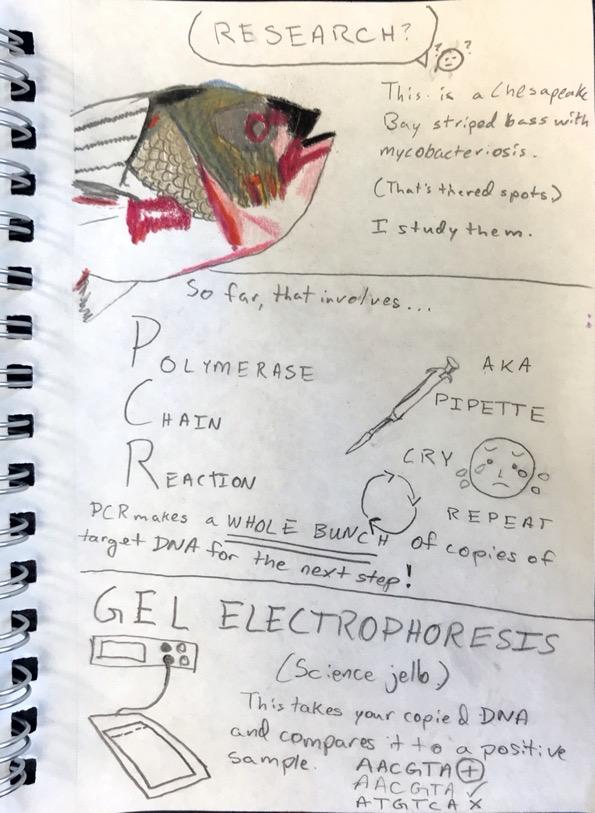 RESEARCH?
? ?
This is a Chesapeake
Bay striped bass with
mycobacteriosis.
(That's the red spots)
I study them.
So far, that involves...
POLYMERASE
CHAIN
REACTION
AKA
PIPETTE
CRY
REPEAT
PCR makes a WHOLE BUNCH of copies of
target DNA for the next step!
GEL ELECTROPHORESIS
(Science jello)
This takes your copied DNA
and compares it to a positive
sample.
AACGTA +
AACGTA ✓
ATGTCA X